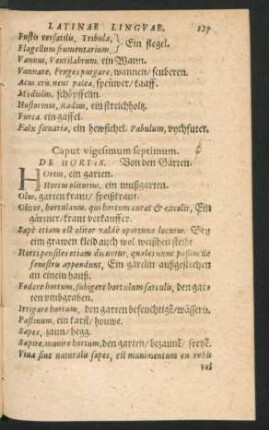 LATINAE LINGVAE. 127
Fustis versatilis, Tribula,
Flagellum frumentarium, } Ein flegel.
Vannus, Ventilabrum. ein Wann.
Vannare, Fruges purgare, wannen/ seuberen.
Acus eris.neut palea, spreüwer/ kaaff.
Modiolus. schöpffelin.
Hostorium, Radius, ein streichholtz.
Furca. ein gaffel.
Falx fœnaria, ein hewsichel. Pabulum, vychfuter.
Caput vigesimum septimum.
DE HORTIS. Von den Gärten.
HOrtus, ein garten.
Hortus olitorius, ein mußgarten.
Olus, garten kraut/ speißkraut.
Olitor, hortulanus, qui hortum curat & excolit, Ein
gärtner/ kraut verkauffer.
Sæpè etiam est olitor valdè oportuna locutus. Vnder
ein grawen kleid auch wol weißheit steckt.
Horti pensiles etiam dicuntur, quales nunc passim de
fenestris appendunt, Ein gärtlin auffgestrecket
an einem hauß.
Fodere hortum, subigere hortulum sarculis, den garten
vmbgraben.
Irrigare hortum, den garten befeuchtigē/ wässern.
Pastinum, ein karst/ houwe.
Sepes, zaun/ hegg.
Sepire, munire hortum, den garten/ bezaunē/ freyē.
Viua siue naturalis sepes, est munimentum ex rubis